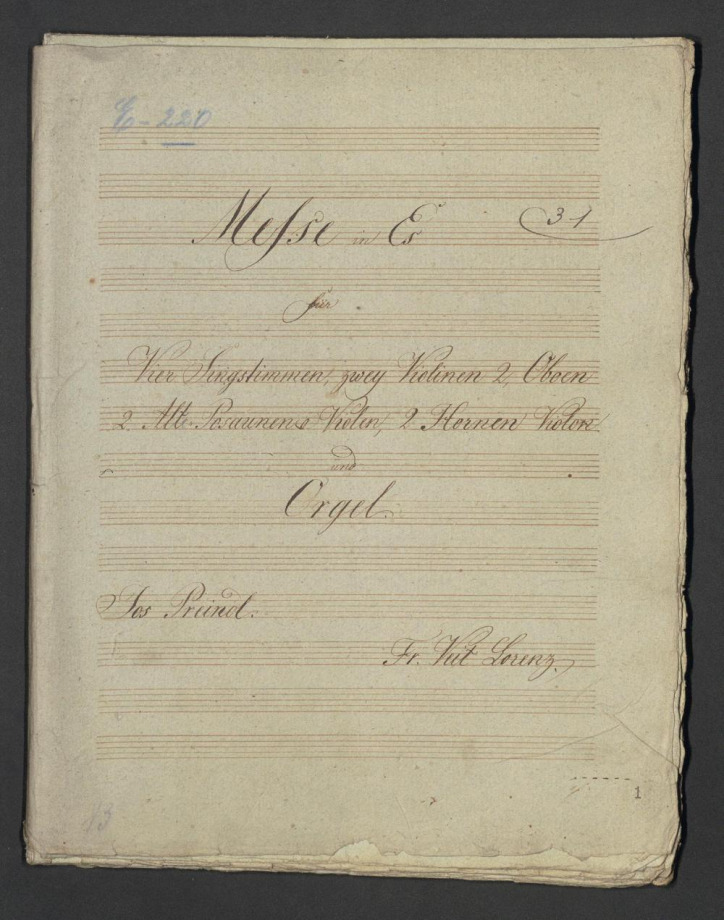 E-220
Messe in Es
31
für
Vier Singstimmen, zwey Violinen 2, Oboen
2 Alt-Posaunen Violen, 2 Hornen Violon
und
Orgel.
Jos Preindl.
Fr. Veit Lorenz.
1
13